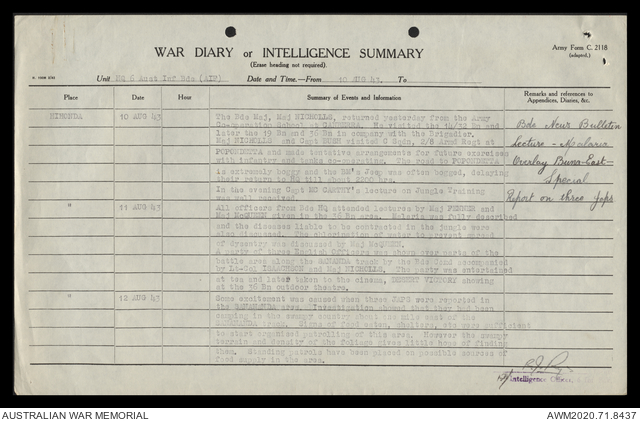 WAR DIARY or INTELLIGENCE SUMMARY
(Erase heading not required).
Army Form C. 2118
(adapted.)
Unit HQ 6 Aust Inf Bde (AIF) Date and Time.—From 10 AUG 43 To
Place Date Hour Summary of Events and Information Remarks and references to Appendices, Diaries, &c.
HIMONDA 10 AUG 43 The Bde Maj, Maj NICHOLLS, returned yesterday from the Army
Co-operation School at CANBERRA. He visited the 14/32 Bn and
later the 19 Bn and 36 Bn in company with the Brigadier.
Maj NICHOLLS and Capt visited C Sqn, 2/8 Armd Regt at
POPONDETTA and made tentative arrangements for future exercises
with infantry and tanks co-operating. The road to POPONDETTA
is extremely boggy and the BM's Jeep was often bogged, delaying
their return to HQ till about 2200 hrs.
In the evening Capt MC CARTHY's lecture on Jungle Training
was well received.
" 11 AUG 43 All officers from Bde HQ attended lectures by Maj and
Maj McQUEEN given in the 36 Bn area. Malaria was fully described
and the diseases liable to be contracted in the jungle were
also discussed. The chlorination of water to prevent spread
of dysentry was discussed by Maj McQUEEN.
A party of three English Officers was shown over parts of the
battle area along the SANANDA track by the Bde Comd accompanied
by Lt-Col ISAACHSON and Maj NICHOLLS. The party was entertained
at tea and later taken to the cinema, DESERT VICTORY showing
at the 36 Bn outdoor theatre.
" 12 AUG 43 Some excitement was caused when three JAPS were reported in
the area. Investigation showed that they had been
camping in the swampy country about one mile east of the
track. Signs of food eaten, shelters, etc were sufficient
to start organised patrolling of this area. However the swampy
terrain and density of the foliage gives little hope of finding
them. Standing patrols have been placed on possible sources of
food supply in the area.
Bde News Bulletin
Lecture - Malaria
Overlay Buna-East-
Special
Report on three Japs
Intelligence Officer
AUSTRALIAN WAR MEMORIAL
AWM2020.71.8437